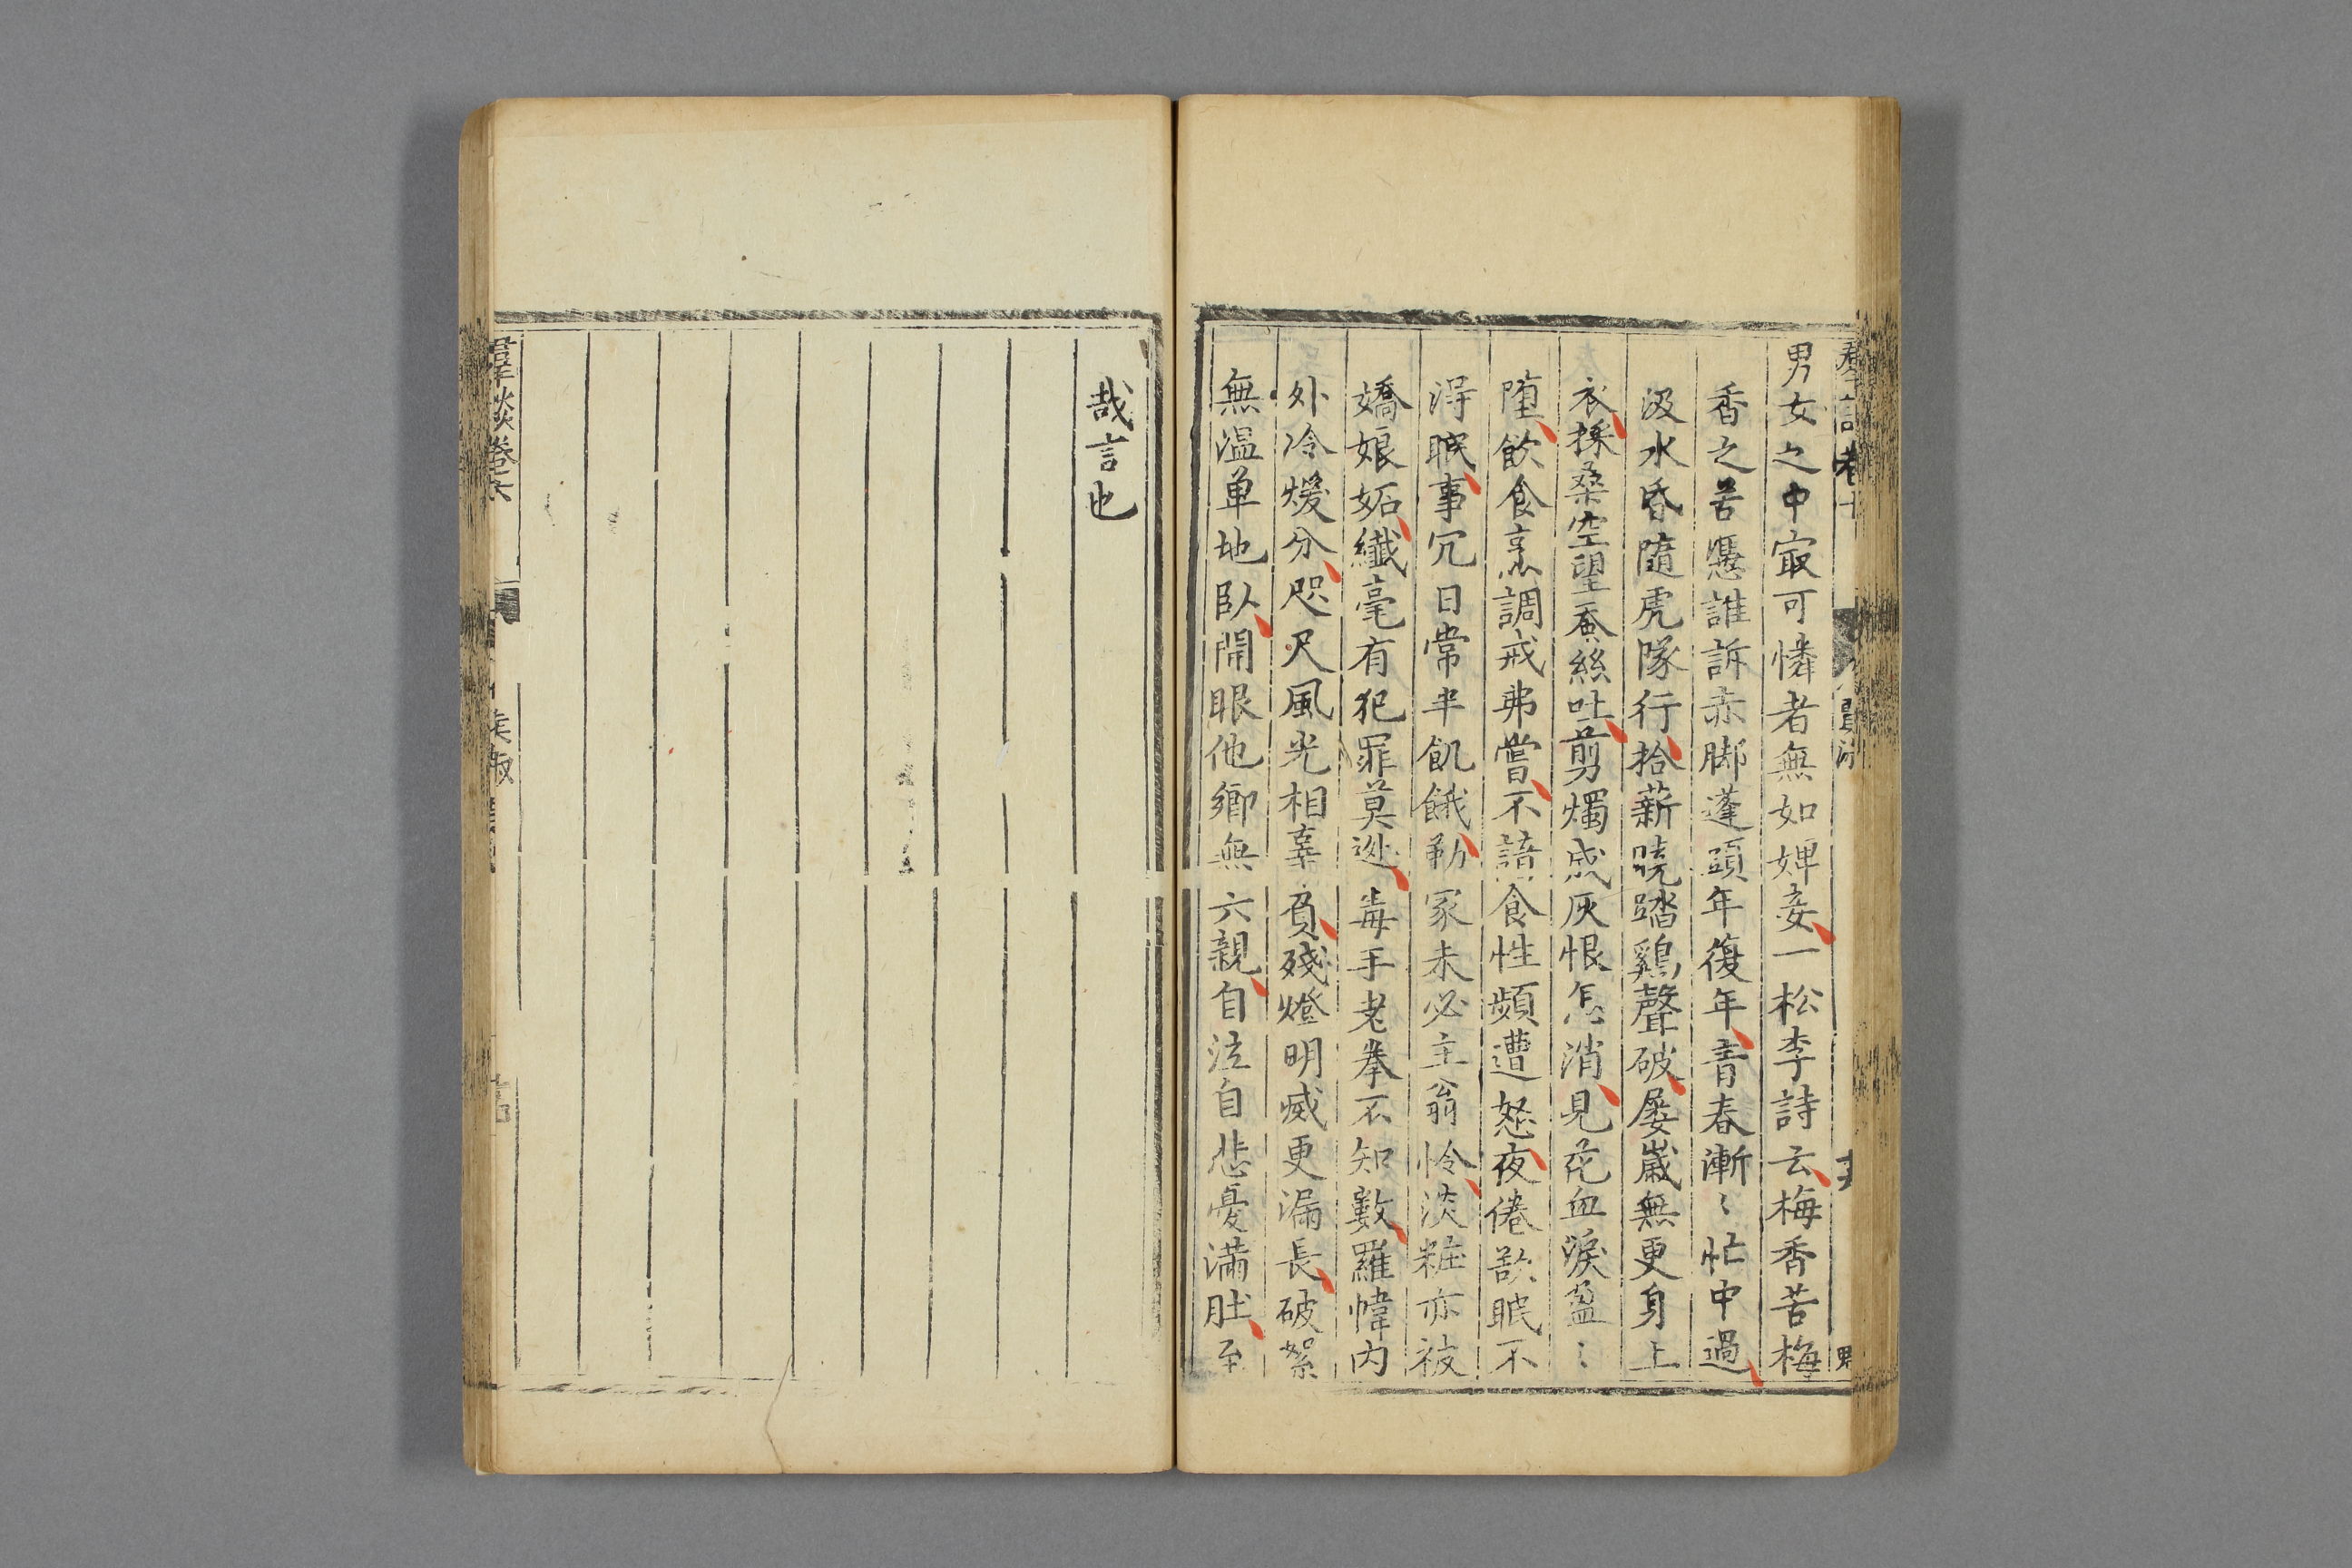 男女之中㝡可憐者無如婢妾一松李詩云梅香苦梅
香之苦慿誰訴赤脚蓬頭年復年青春漸〻忙中過
汲水昏隨虎隊行拾薪曉踏鷄聲破屡嵗無更身上
衣採桑空望蚕絲吐剪燭成灰恨怎消見花血淚盈〻
堕飲食烹調戒弗嘗不諳食性頻遭怒夜倦欲眠不
淂眠事冗日常半飢餓勤家未必主翁怜淡粧亦被
嬌娘妬纎毫有犯罪莫逃毒手老拳不知數羅幃内
外冷煖分咫尺風光相辜負殘燈明滅更漏長破絮
無温单地臥開眼他鄉無六親自泣自悲憂満肚至
哉言也
羣談卷六